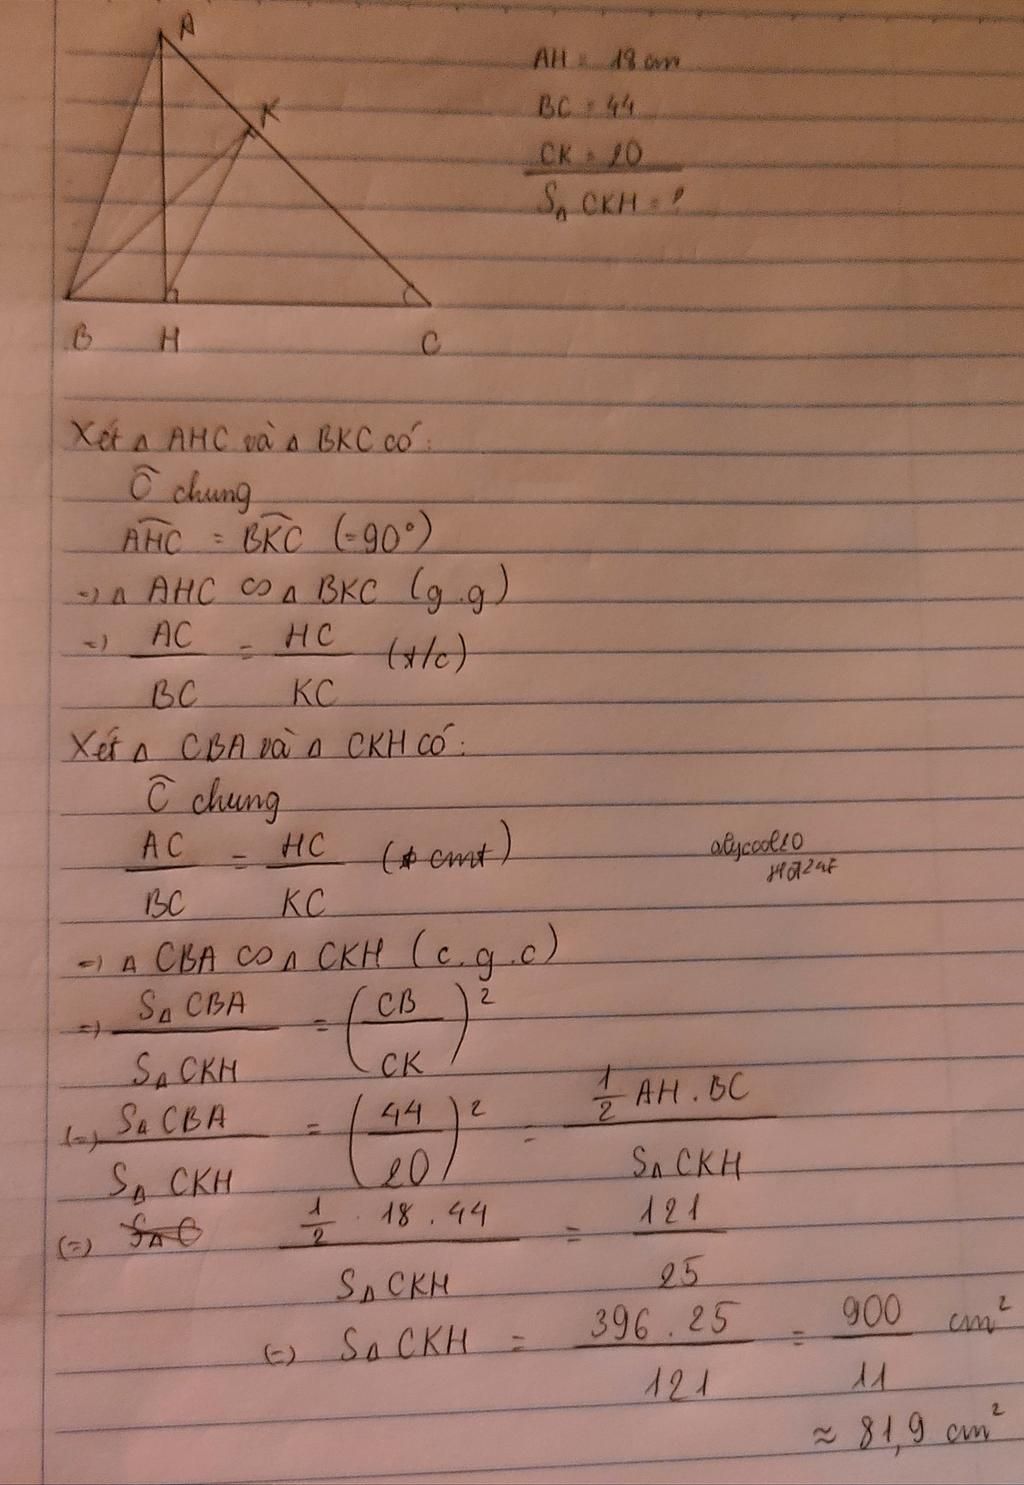 A
K
B H C
AH = 18 cm
BC = 44
CK = 20
S△ CKH = ?
Xét △ AHC và △ BKC có:
Ĉ chung
AHC = BKC (=90°)
=> △ AHC ∽ △ BKC (g.g)
=> AC/BC = HC/KC (t/c)
Xét △ CBA và △ CKH có:
Ĉ chung
AC/BC = HC/KC (cmt)
=> △ CBA ∽ △ CKH (c.g.c)
=> S△ CBA / S△ CKH = (CB/CK)²
(=) S△ CBA / S△ CKH = (44/20)² = 1/2 AH.BC / S△ CKH
(=) 1/2 . 18 . 44 / S△ CKH = 121/25
(=) S△ CKH = 396.25/121 = 900/11 cm²
≈ 81,9 cm²